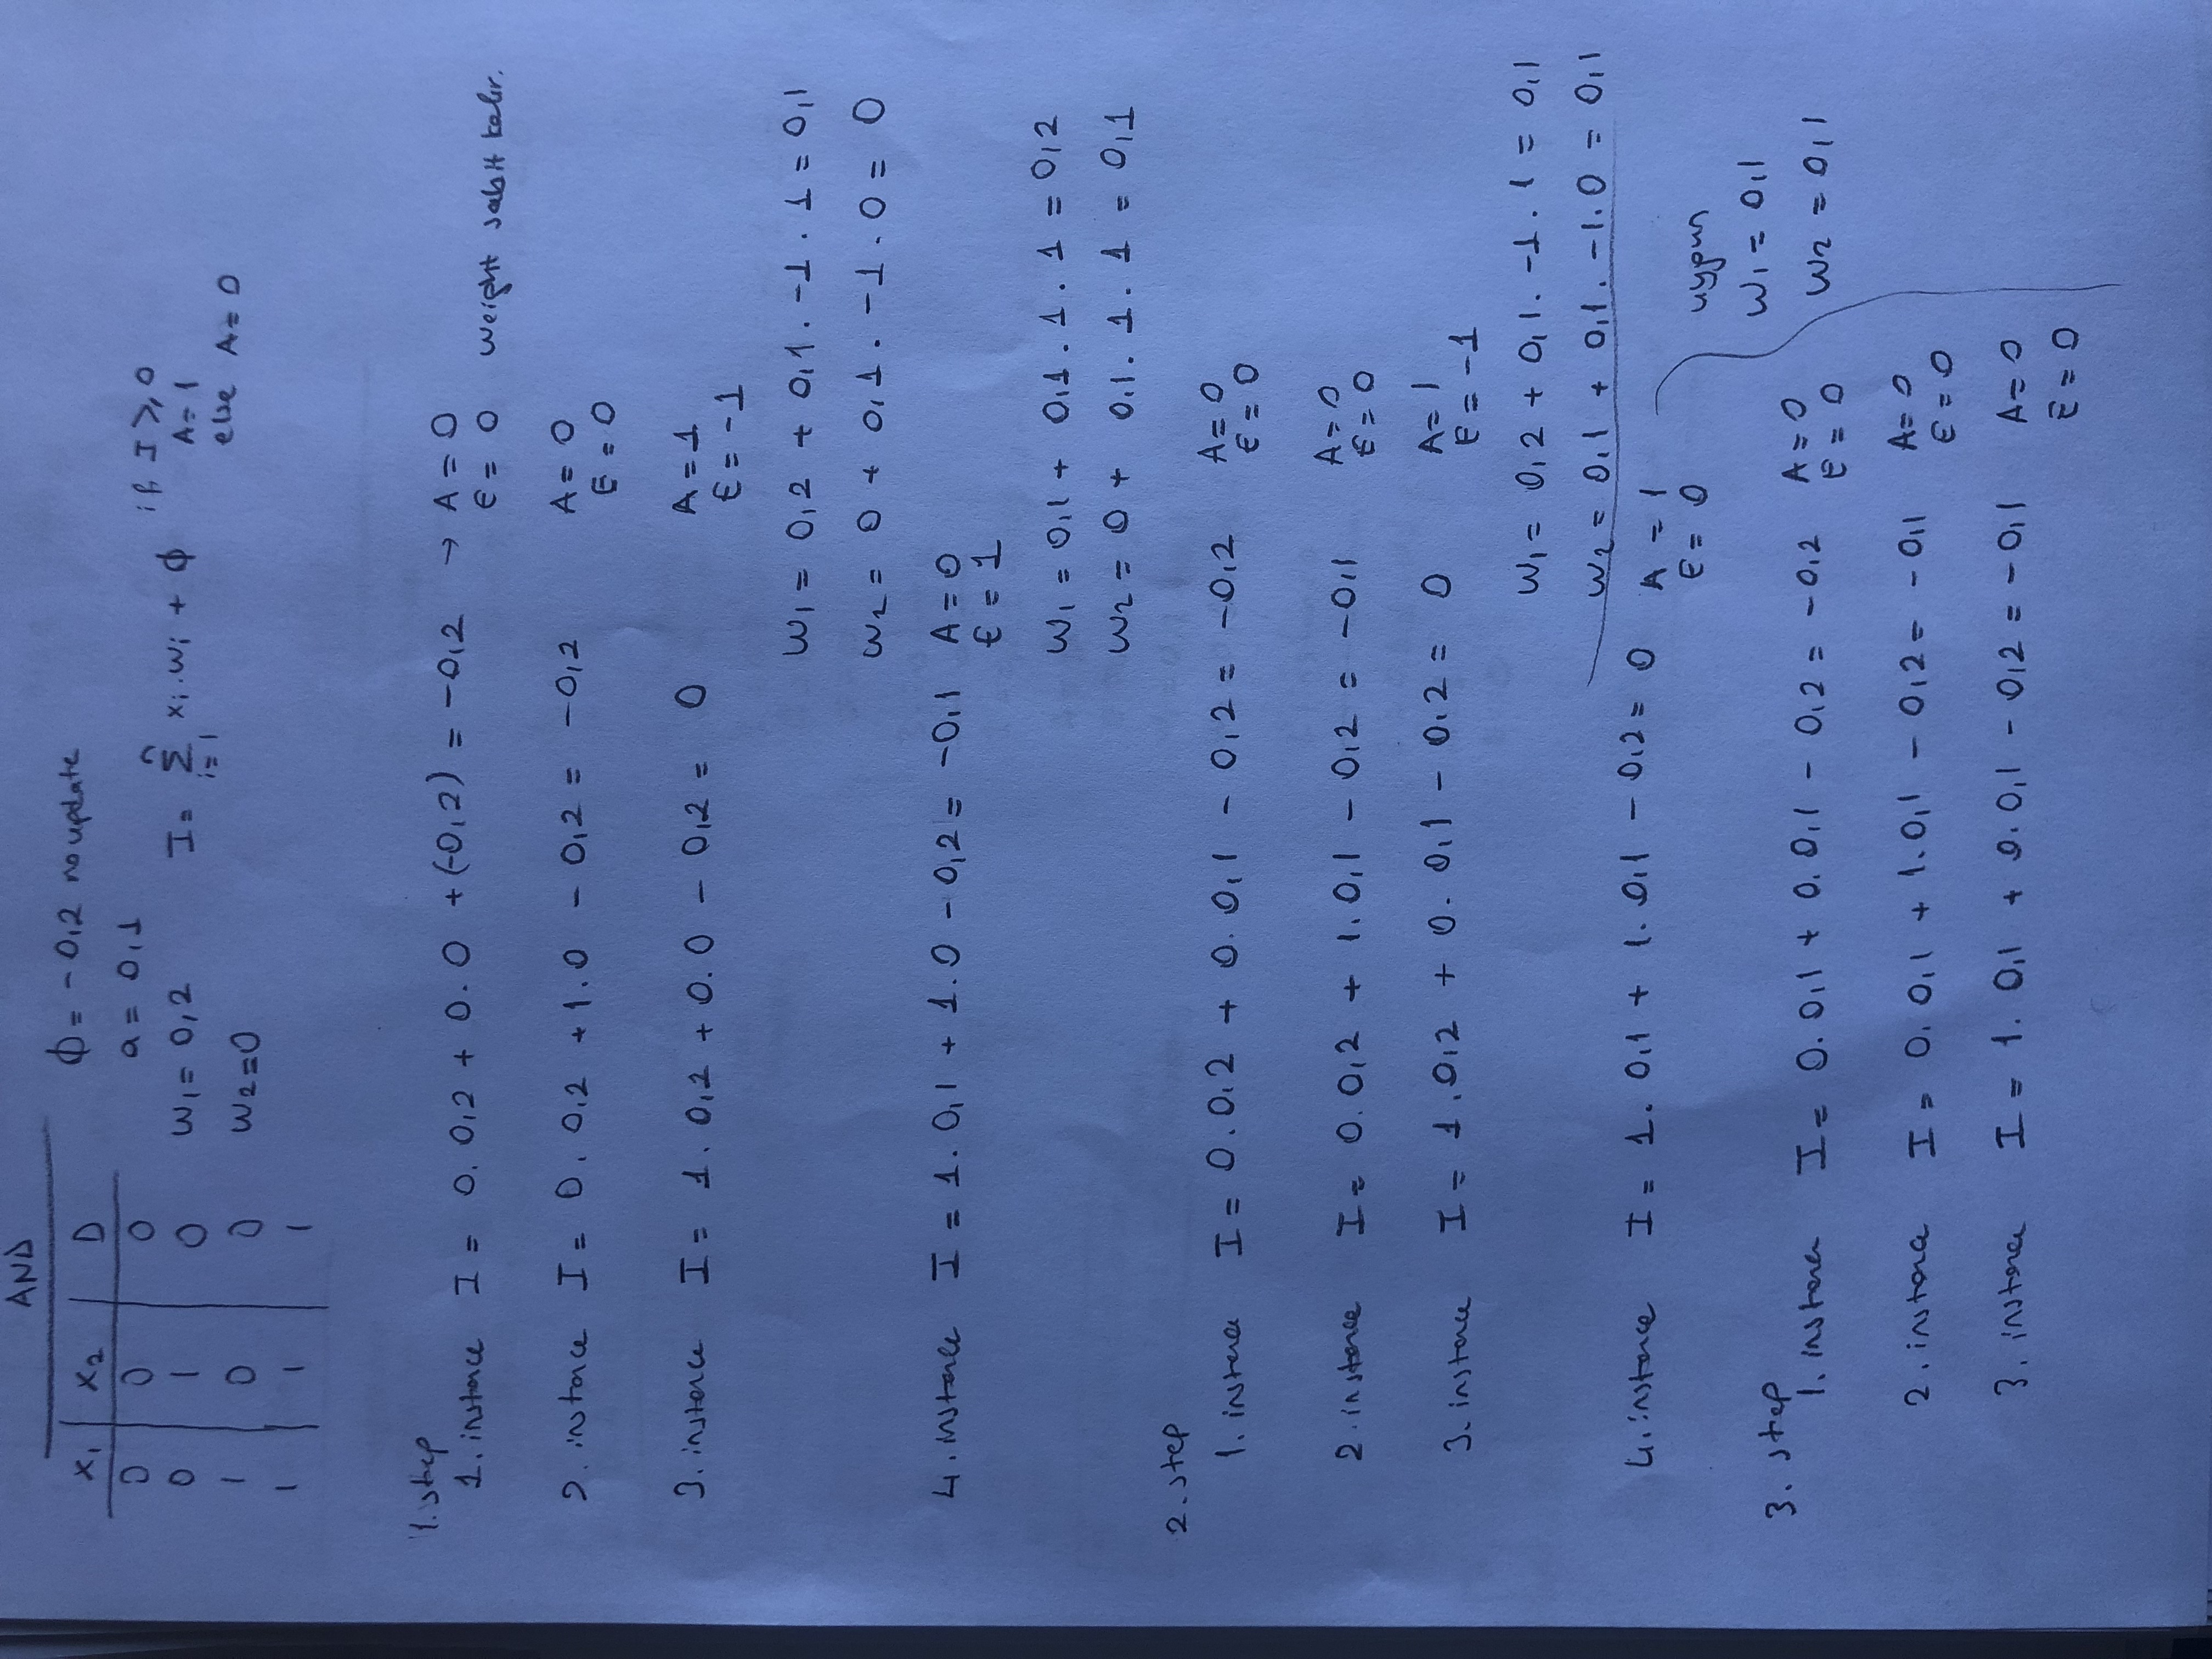 AND
x₁ x₂ D
0 0 0
0 1 0
1 0 0
1 1 1
ϕ = -0,2 no update
a = 0,1
w₁ = 0,2
w₂ = 0
I = n Σ i=1 xᵢ.wᵢ + ϕ
if I ≥ 0
A = 1
else A = 0
1. step
1. instance I = 0. 0,2 + 0. 0 + (-0,2) = -0,2 → A = 0
E = 0 weight sabit kalır.
2. instance I = 0. 0,2 + 1.0 - 0,2 = -0,2 A = 0
E = 0
3. instance I = 1. 0,2 + 0.0 - 0,2 = 0 A = 1
E = -1
w₁ = 0,2 + 0,1. -1. 1 = 0,1
w₂ = 0 + 0,1. -1. 0 = 0
4. instance I = 1. 0,1 + 1.0 - 0,2 = -0,1 A = 0
E = 1
w₁ = 0,1 + 0,1. 1. 1 = 0,2
w₂ = 0 + 0.1. 1. 1 = 0,1
2. step
1. instance I = 0.0.2 + 0. 0,1 - 0,2 = -0,2 A = 0
E = 0
2. instance I = 0.0,2 + 1.0,1 - 0,2 = -0,1 A = 0
E = 0
3. instance I = 1.0,2 + 0. 0,1 - 0.2 = 0 A = 1
E = -1
w₁ = 0,2 + 0,1. -1. 1 = 0,1
w₂ = 0,1 + 0,1. -1.0 = 0,1
4. instance I = 1. 0,1 + 1. 0,1 - 0,2 = 0 A = 1
E = 0
uygun
w₁ = 0,1
w₂ = 0,1
3. step
1. instance I = 0. 0,1 + 0. 0,1 - 0,2 = -0,2 A = 0
E = 0
2. instance I = 0. 0,1 + 1.0,1 - 0,2 = -0,1 A = 0
E = 0
3. instance I = 1. 0,1 + 0. 0,1 - 0,2 = -0,1 A = 0
E = 0